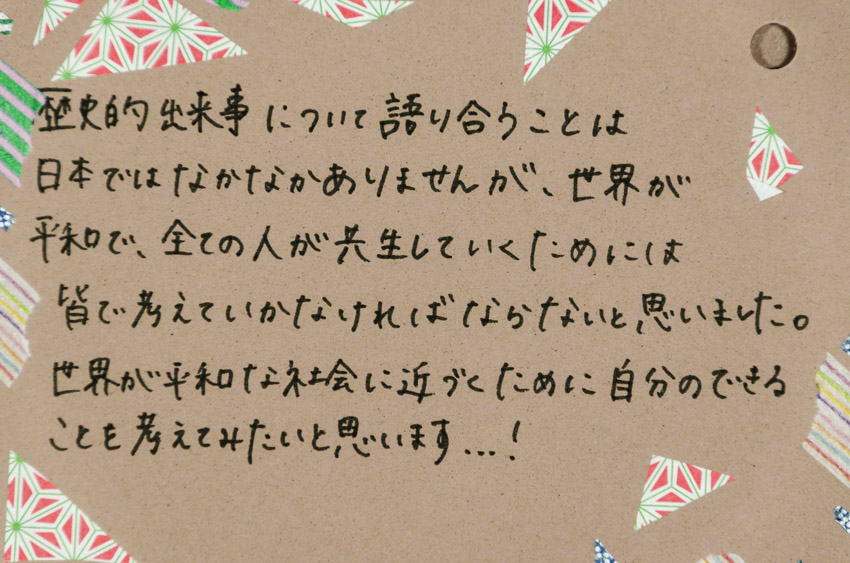 歴史的出来事について語り合うことは
日本ではなかなかありませんが、世界が
平和で、全ての人が共生していくためには
皆で考えていかなければならないと思いました。
世界が平和な社会に近づくために自分のできる
ことを考えてみたいと思います…!